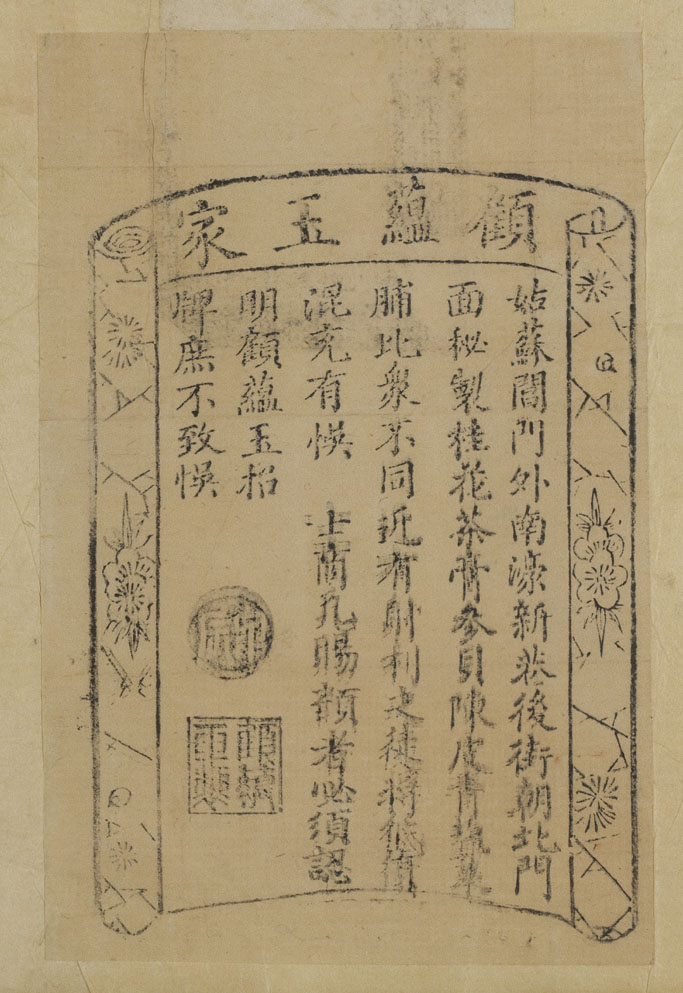 顧蘊玉家
姑蘇閶門外南濠新巷後街朝北門
面秘製桂花茶膏參貝陳皮青
脯比衆不同近有射利之徒將低假
混充有悞 士商凡賜顧者必須認
明顧蘊玉招
牌庶不致悞